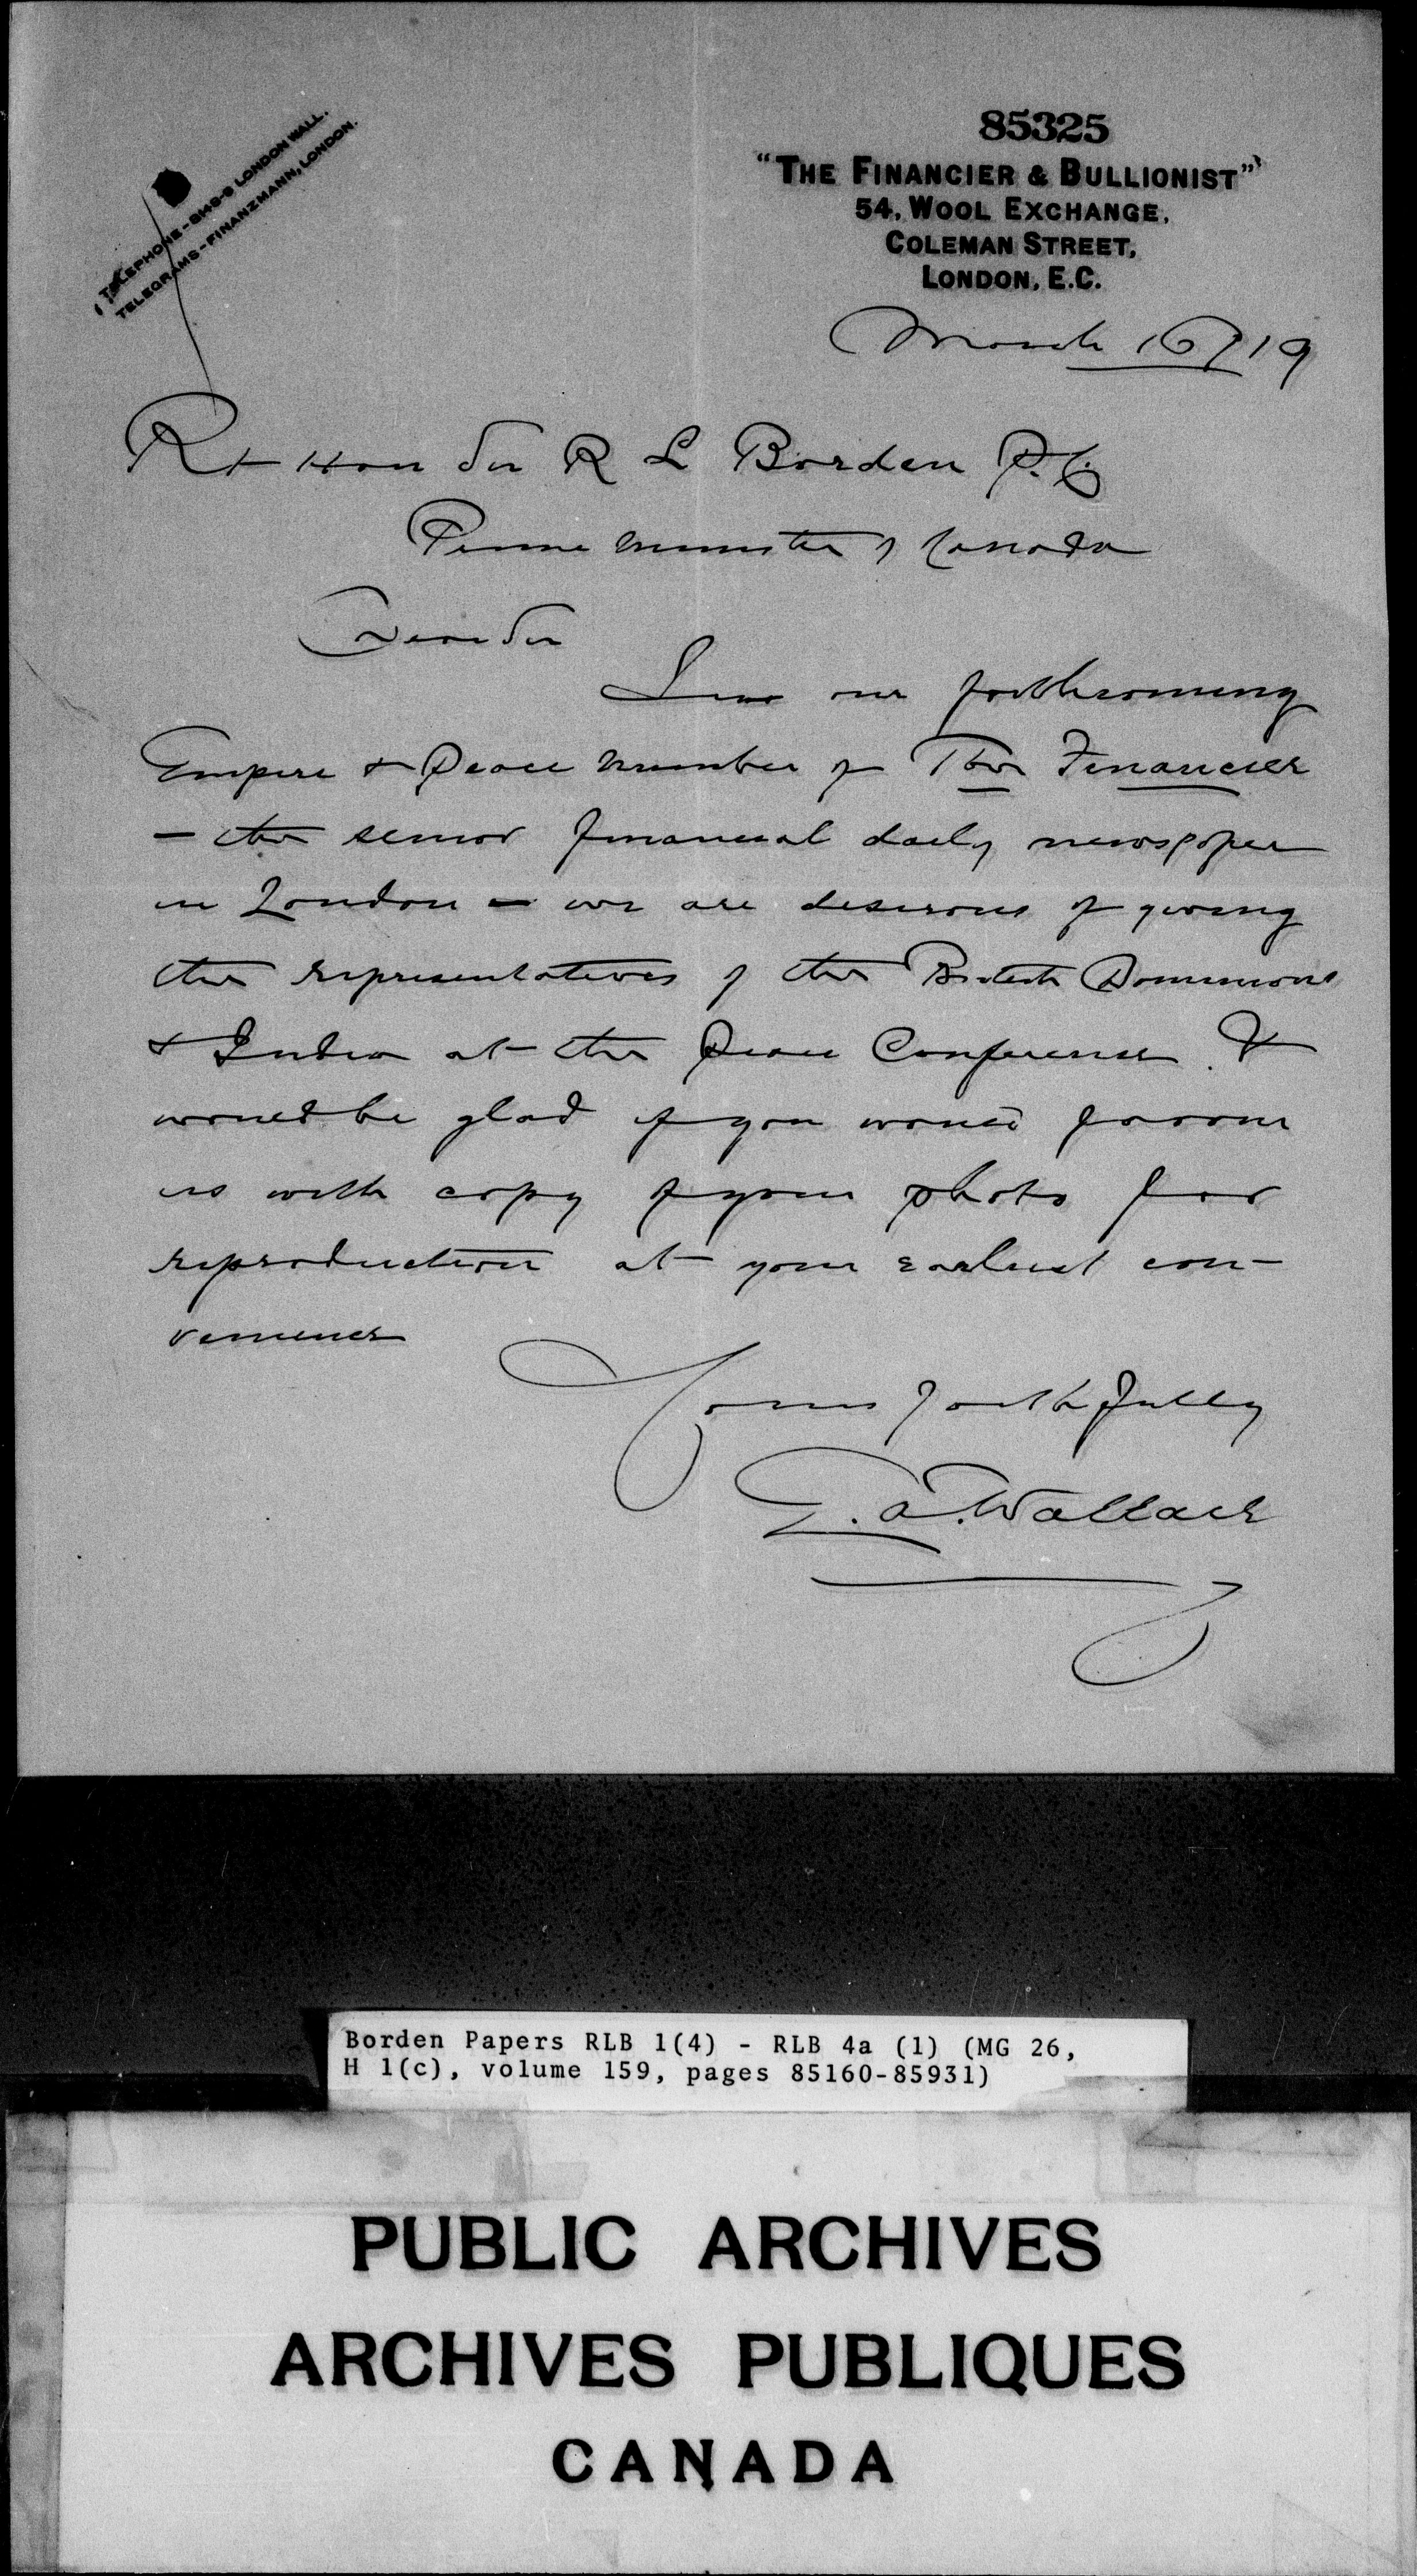 85325
"THE FINANCIER & BULLIONIST"
54, WOOL EXCHANGE,
COLEMAN STREET,
LONDON, E.C.
TELEPHONE - LONDON WALL.
TELEGRAMS - FINANZMANN, LONDON.
March 16/19
Rt Hon Sir R L Borden P.C.
Prime Minister of Canada
Dear Sir
In our forthcoming
Empire & Peace number of The Financier
- the senior financial daily newspaper
in London - we are desirous of giving
the representatives of the British Dominions
& India at the Peace Conference. &
would be glad if you would favour
us with copy of your photo for
reproduction at your earliest con-
venience
Yours faithfully
E. A. Wallace
Borden Papers RLB 1(4) - RLB 4a (1) (MG 26,
H 1(c), volume 159, pages 85160-85931)
PUBLIC ARCHIVES
ARCHIVES PUBLIQUES
CANADA